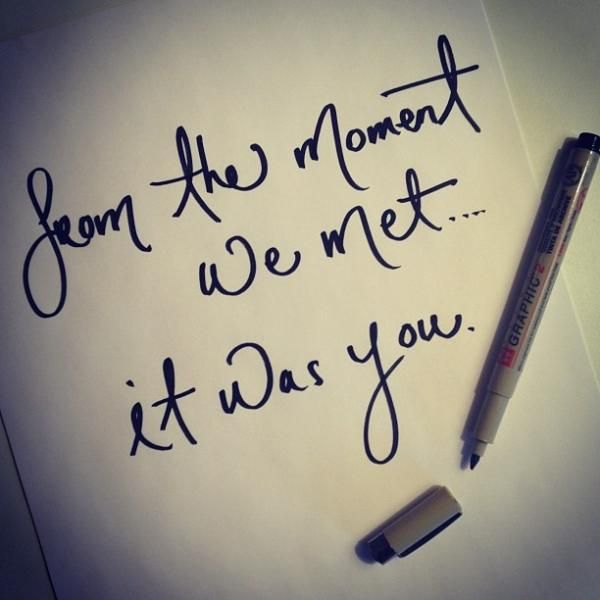 from the moment
we met....
it was you.
GRAPHIC 2